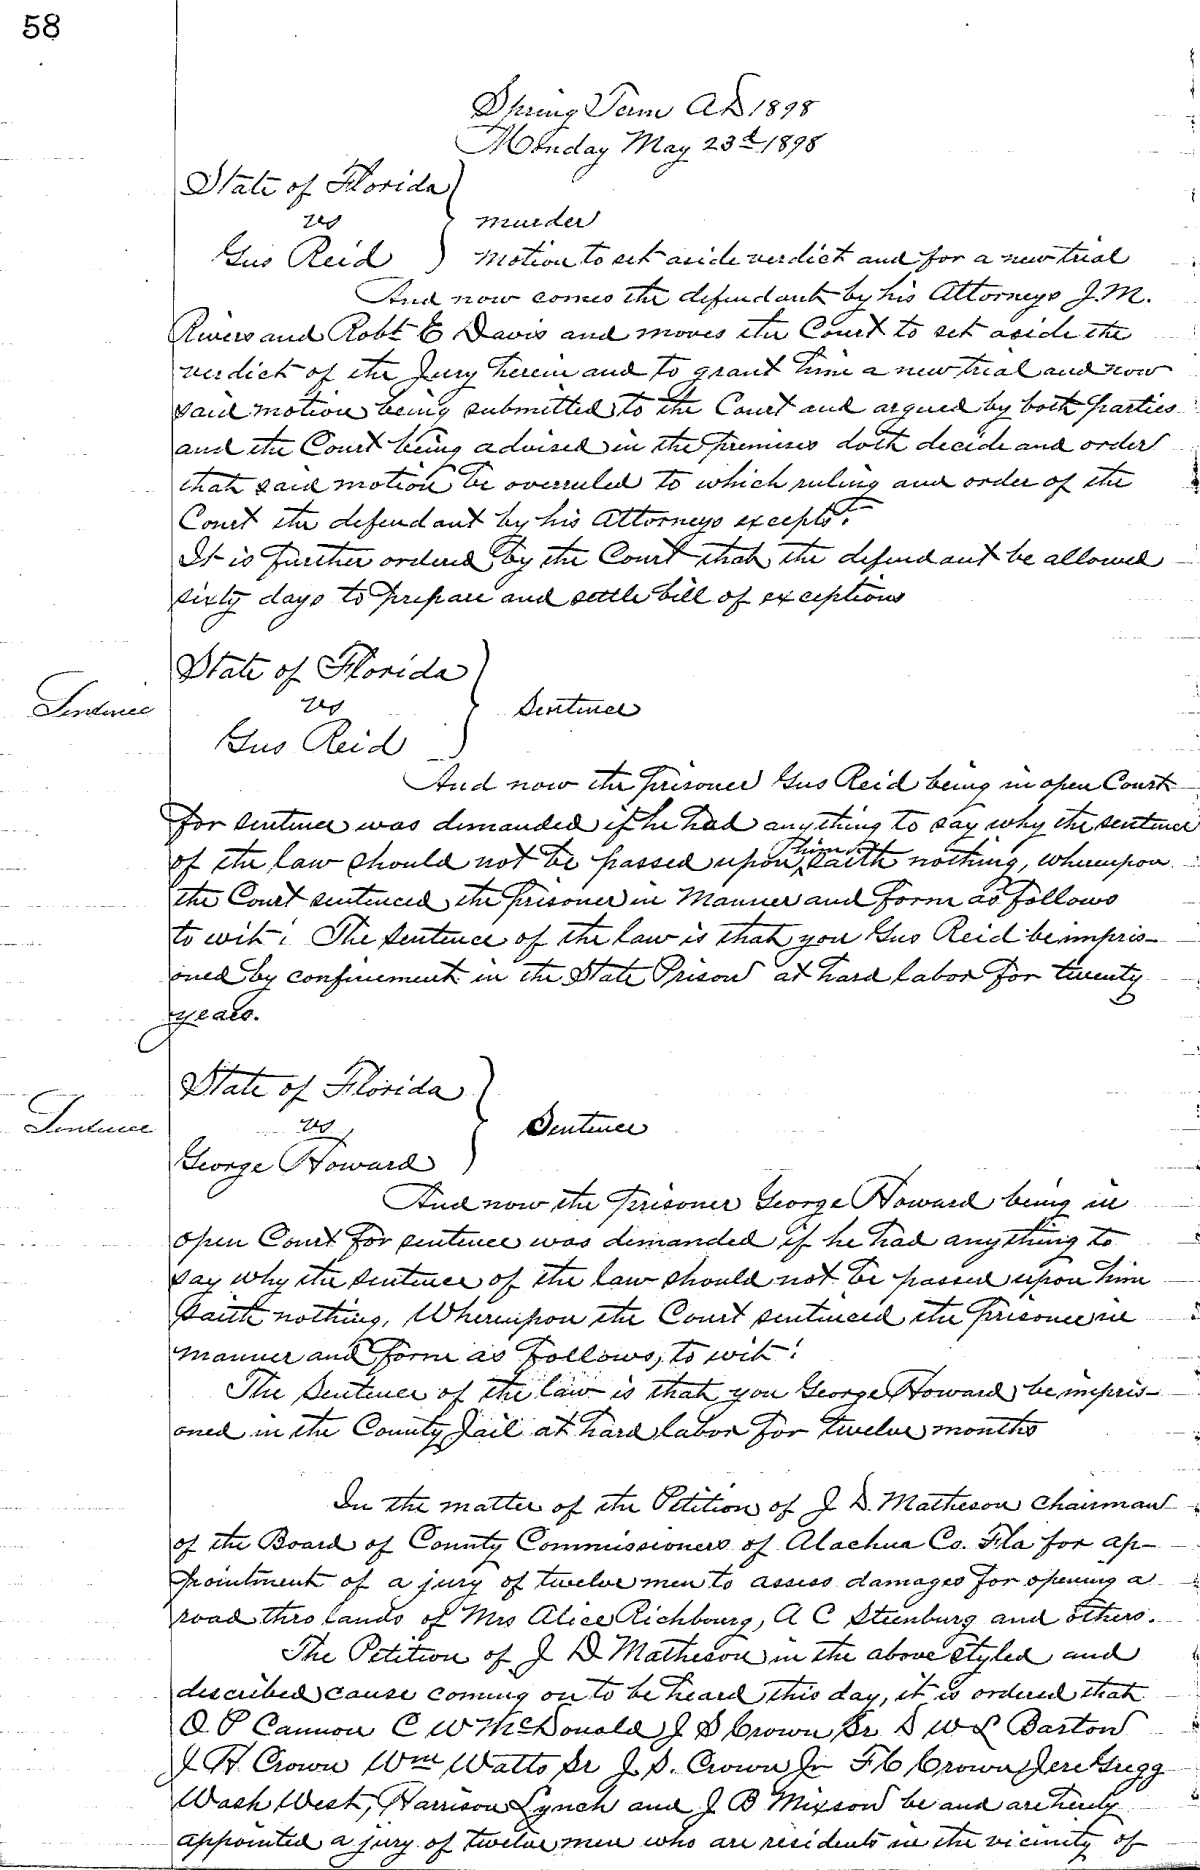 58
Spring Term A D 1898
Monday May 23d 1898
State of Florida
vs murder
Gus Reid motion to set aside verdict and for a new trial
And now comes the defendant by his Attorneys J. M.
Rivers and Robt E Davis and moves the Court to set aside the
verdict of the Jury herein and to grant him a new trial and now
said motion being submitted to the Court and argued by both parties
and the Court being advised in the premises doth decide and order
that said motion be overruled to which ruling and order of the
Court the defendant by his Attorneys excepts.
It is further ordered by the Court that the defendant be allowed
sixty days to prepare and settle bill of exceptions
State of Florida
Sentence vs Sentence
Gus Reid
And now the prisoner Gus Reid being in open Court
for sentence was demanded if he had anything to say why the sentence
of the law should not be passed upon him saith nothing, whereupon
the Court sentenced the prisoner in manner and form as follows
to wit: The Sentence of the law is that you Gus Reid be impris-
oned by confinement in the State Prison at hard labor for twenty
years.
State of Florida
Sentence vs Sentence
George Howard
And now the prisoner George Howard being in
open Court for sentence was demanded if he had anything to
say why the sentence of the law should not be passed upon him
saith nothing, Whereupon the Court sentenced the prisoner in
manner and form as follows, to wit:
The Sentence of the law is that you George Howard be impris-
oned in the County Jail at hard labor for twelve months
In the matter of the Petition of J D. Matheson Chairman
of the Board of County Commissioners of Alachua Co. Fla for ap-
pointment of a jury of twelve men to assess damages for opening a
road thro lands of Mrs Alice Richbourg, A C Steenburg and others.
The Petition of J D Matheson in the above styled and
described cause coming on to be heard this day, it is ordered that
O. P Cannon C W McDonald J S Crown Sr D W L Barton
J H Crown Wm Watts Sr J. S. Crown Jr F C Crown Jere Gregg
Wash West, Harrison Lynch and J B Mixson be and are hereby
appointed a jury of twelve men who are residents in the vicinity of